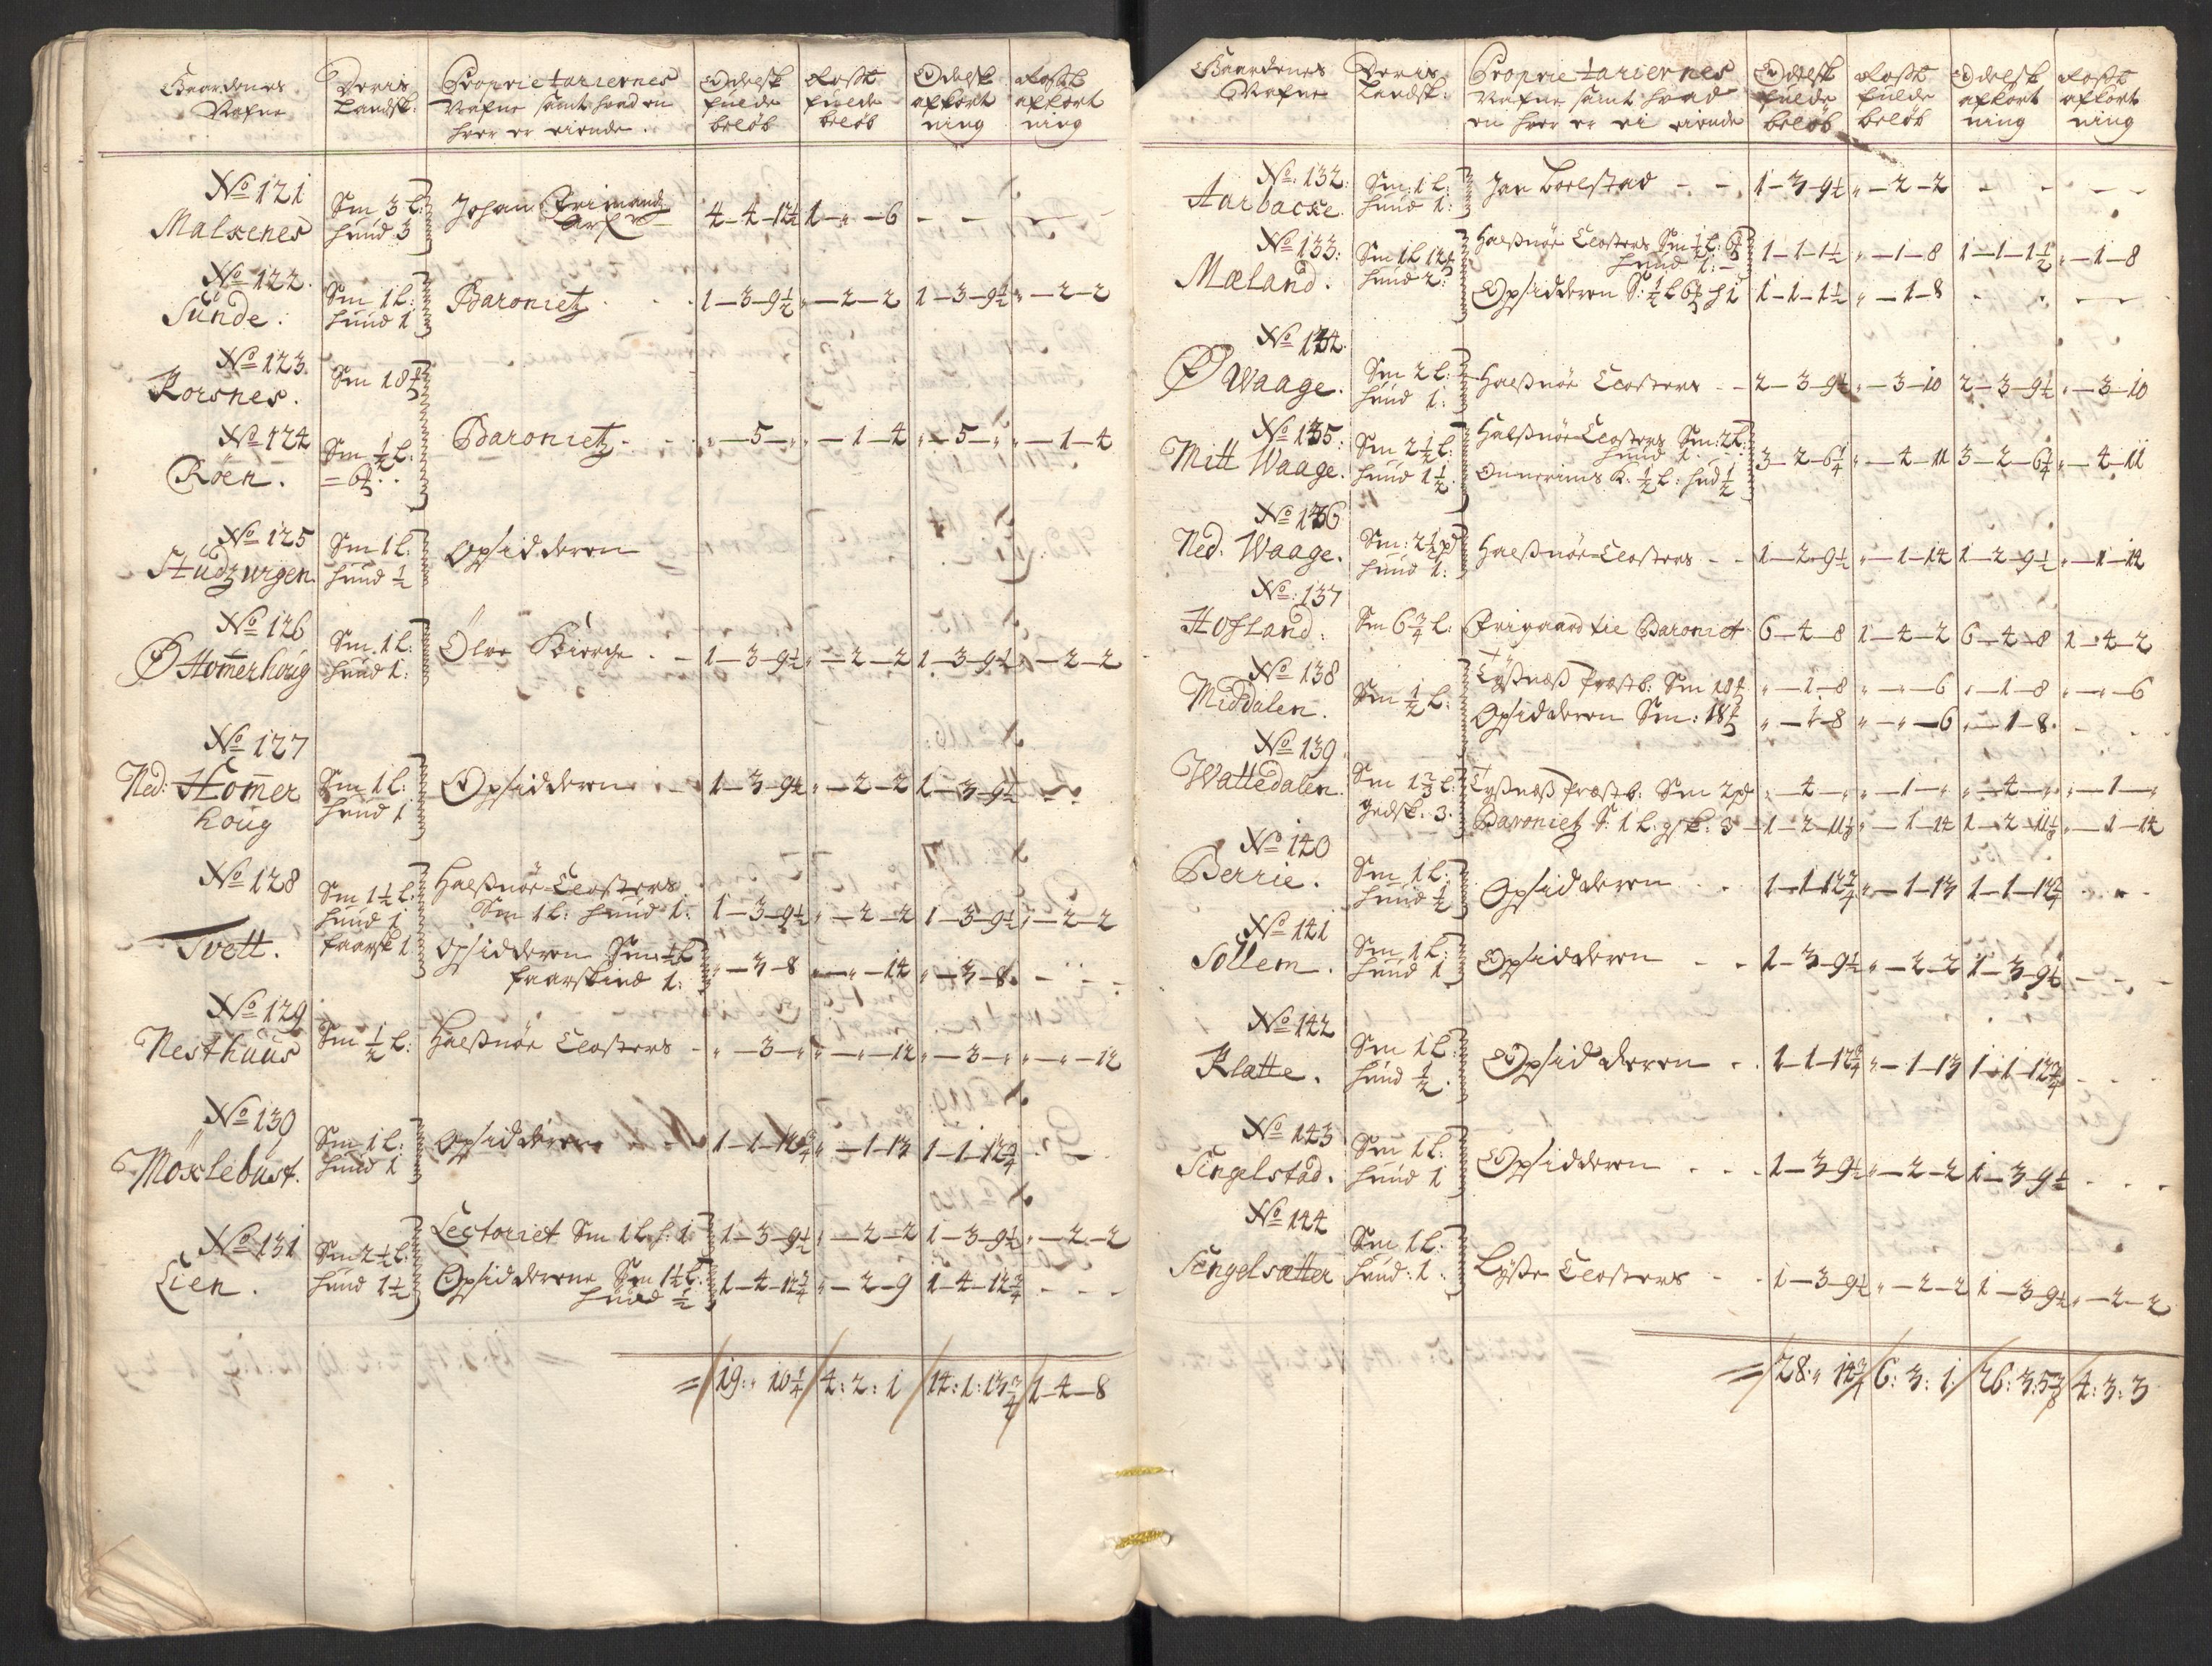 Gaardenes Nafne | Deris Landsk: | Proprietariernes Nafne samt hvad en hver er eiende. | Odelsk: fulde beløb | Rostt: fulde beløb | Odelsk: afkortning | Rostt: afkortning
No 121
Malkenes | Sm 3 L: huud 3 | Johan | 4-4-12¼ | 1-"-6 | - - | - -
No 122.
Sunde. | Sm 1 L: huud 1 | Baronietz | 1-3-9½ | "-2-2 | 1-3-9½ | "-2-2
No 123.
Korsnes. | Sm 18
No 124
Röen. | Sm ½ L: | Baronietz | "-5-" | "-1-4 | "-5-" | "-1-4
No 125
Studzurgen. | Sm 1 L: huud ½ | Opsidderen
No 126
Ø Homerhoug | Sm. 1 L: huud 1: | Ölve Kierche | 1-3-9½ | "-2-2 | 1-3-9½ | "-2-2
No 127
Ned: Homer houg | Sm 1 L: huud 1 | Opsidderen | 1-3-9½ | "-2-2 | 1-3-9½ | - -
No 128
Tvett. | Sm 1½ L: huud 1 faarsk 1 | Halsnöe Closters Sm 1 L: huud 1: | 1-3-9½ | "-2-2 | 1-3-9½ | "-2-2
Opsidderen Sm ½ L faarskind 1: | "-3-8 | "-"-14 | "-3-8 | - - -
No 129
Nesthuus | Sm ½ L: | Halsnöe Closters | "-3-" | "-"-12 | "-3-" | "-"-12
No 130
Möklebust. | Sm 1 L: huud 1 | Opsidderen | 1-1-12¾ | "-1-13 | 1-1-12¾ | - -
No 131
Lien. | Sm 2½ L: huud 1½ | Lectoriet Sm 1 L. h. 1 | 1-3-9½ | "-2-2 | 1-3-9½ | "-2-2
Opsidderene Sm 1½ L: huud ½ | 1-4-12¾ | "-2-9 | 1-4-12¾ | - - -
= 19: " 10¼ | 4: 2: 1 | 14: 1: 13¾ | 1-4-8
Gaardenes Nafne | Deris Landsk: | Proprietariernes Nafne samt hvad en hver er ei eiende | Odelsk fulde beløb | Rostt fulde beløb | Odelsk afkortning | Rostt afkortning
No. 132:
Aarbacke. | Sm: 1 L: huud 1: | Jan Borlstad | 1-3-9½ | "-2-2 | - - | - -
No 133:
Mæland. | Sm 1 L 12 huud 2: | Halsnöe Closters Sm ½ L: 6 huud 1: | 1-1-1½ | "-1-8 | 1-1-1½ | "-1-8
Opsidderen S: ½ L 6 h 1 | 1-1-1½ | "-1-8 | - - | - -
No 134.
Ø Waage. | Sm 2 L: huud 1: | Halsnöe Closters | 2-3-9½ | "-3-10 | 2-3-9½ | "-3-10
No 135:
Mitt Waage. | Sm 2½ L: huud 1½ | Halsnöe Closters Sm: 2 L: huud 1. | 3-2-6¼ | "-4-11 | 3-2-6¼ | "-4-11
K. ½ L: hud ½
No 136
Ned. Waage. | Sm: 2½ pd huud 1: | Halsnöe Closters | 1-2-9½ | "-1-14 | 1-2-9½ | "-1-14
No: 137
Hofland: | Sm 6¾ L: | Frigaard til Baroniet | 6-4-8 | 1-4-2 | 6-4-8 | 1-4-2
No 138
Middalen. | Sm ½ L: | Tysnæs Præstb: Sm 18 | "-1-8 | "-"-6 | "-1-8 | "-"-6
Opsidderen Sm: 18 | "-1-8 | "-"-6 | "-1-8. | - - -
No 139
Wattedalen. | Sm 1⅔ L: giedsk. 3. | Tysnæs Præstb: Sm 2 pd | "-4-" | "-1-" | "-4-" | "-1-"
Baronietz S: 1 L. gsk: 3 | 1-2-11½ | "-1-14 | 1-2-11½ | "-1-14
No 140
Berrie. | Sm 1 L: huud ½ | Opsidderen | 1-1-12¾ | "-1-13 | 1-1-12¾ | - -
No 141
Sollem. | Sm 1 L: huud 1 | Opsidderen | 1-3-9½ | "-2-2 | 1-3-9½ | - - -
No 142
Klatte. | Sm 1 L: huud ½. | Opsidderen | 1-1-12¾ | "-1-13 | 1-1-12¾ | - - -
No 143
Singelstad. | Sm 1 L: huud 1 | Opsidderen | 1-3-9½ | "-2-2 | 1-3-9½ | - - -
No 144
Singelsætter | Sm 1 L: huud: 1: | Lyse Closters | 1-3-9½ | "-2-2 | 1-3-9½ | "-2-2
= 28: " 14¾ | 6: 3: 1: | 26: 3: 5⅜ | 4: 3: 3